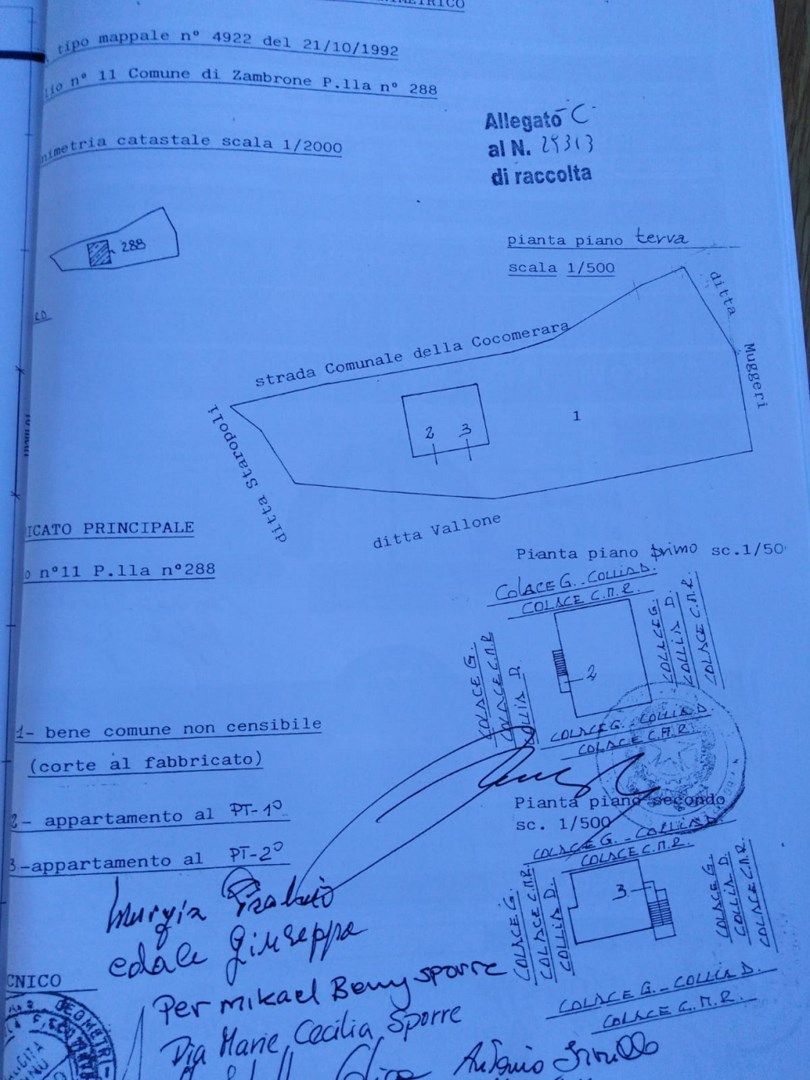 tipo mappale n° 4922 del 21/10/1992
n° 11 Comune di Zambrone P.lla n° 288
nimetria catastale scala 1/2000
Allegato C
al N.
di raccolta
288
pianta piano terra
scala 1/500
strada Comunale della Cocomerara
ditta Muggeri
ditta Staropoli
ditta Vallone
1
2 3
ICATO PRINCIPALE
n°11 P.lla n°288
Pianta piano primo sc.1/50
COLACE G. - COLLIA D.
COLACE C.M.R.
COLACE G.
COLACE C.M.R.
COLLIA D.
2
COLACE G.
COLLIA D.
COLACE C.M.R.
COLACE G. - COLLIA D.
COLACE C.M.R.
1- bene comune non censibile
(corte al fabbricato)
2- appartamento al PT-1°
3-appartamento al PT-2°
Pianta piano secondo
sc. 1/500
COLACE G. - COLLIA D.
COLACE C.M.R.
COLACE G.
COLACE C.M.R.
COLLIA D.
3
COLACE G.
COLLIA D.
COLACE C.M.R.
COLACE G. - COLLIA D.
COLACE C.M.R.
Giuseppa
Per Mikael Benny Sporre
Marie Cecilia Sporre
Antonio
CNICO
GEOMETRI